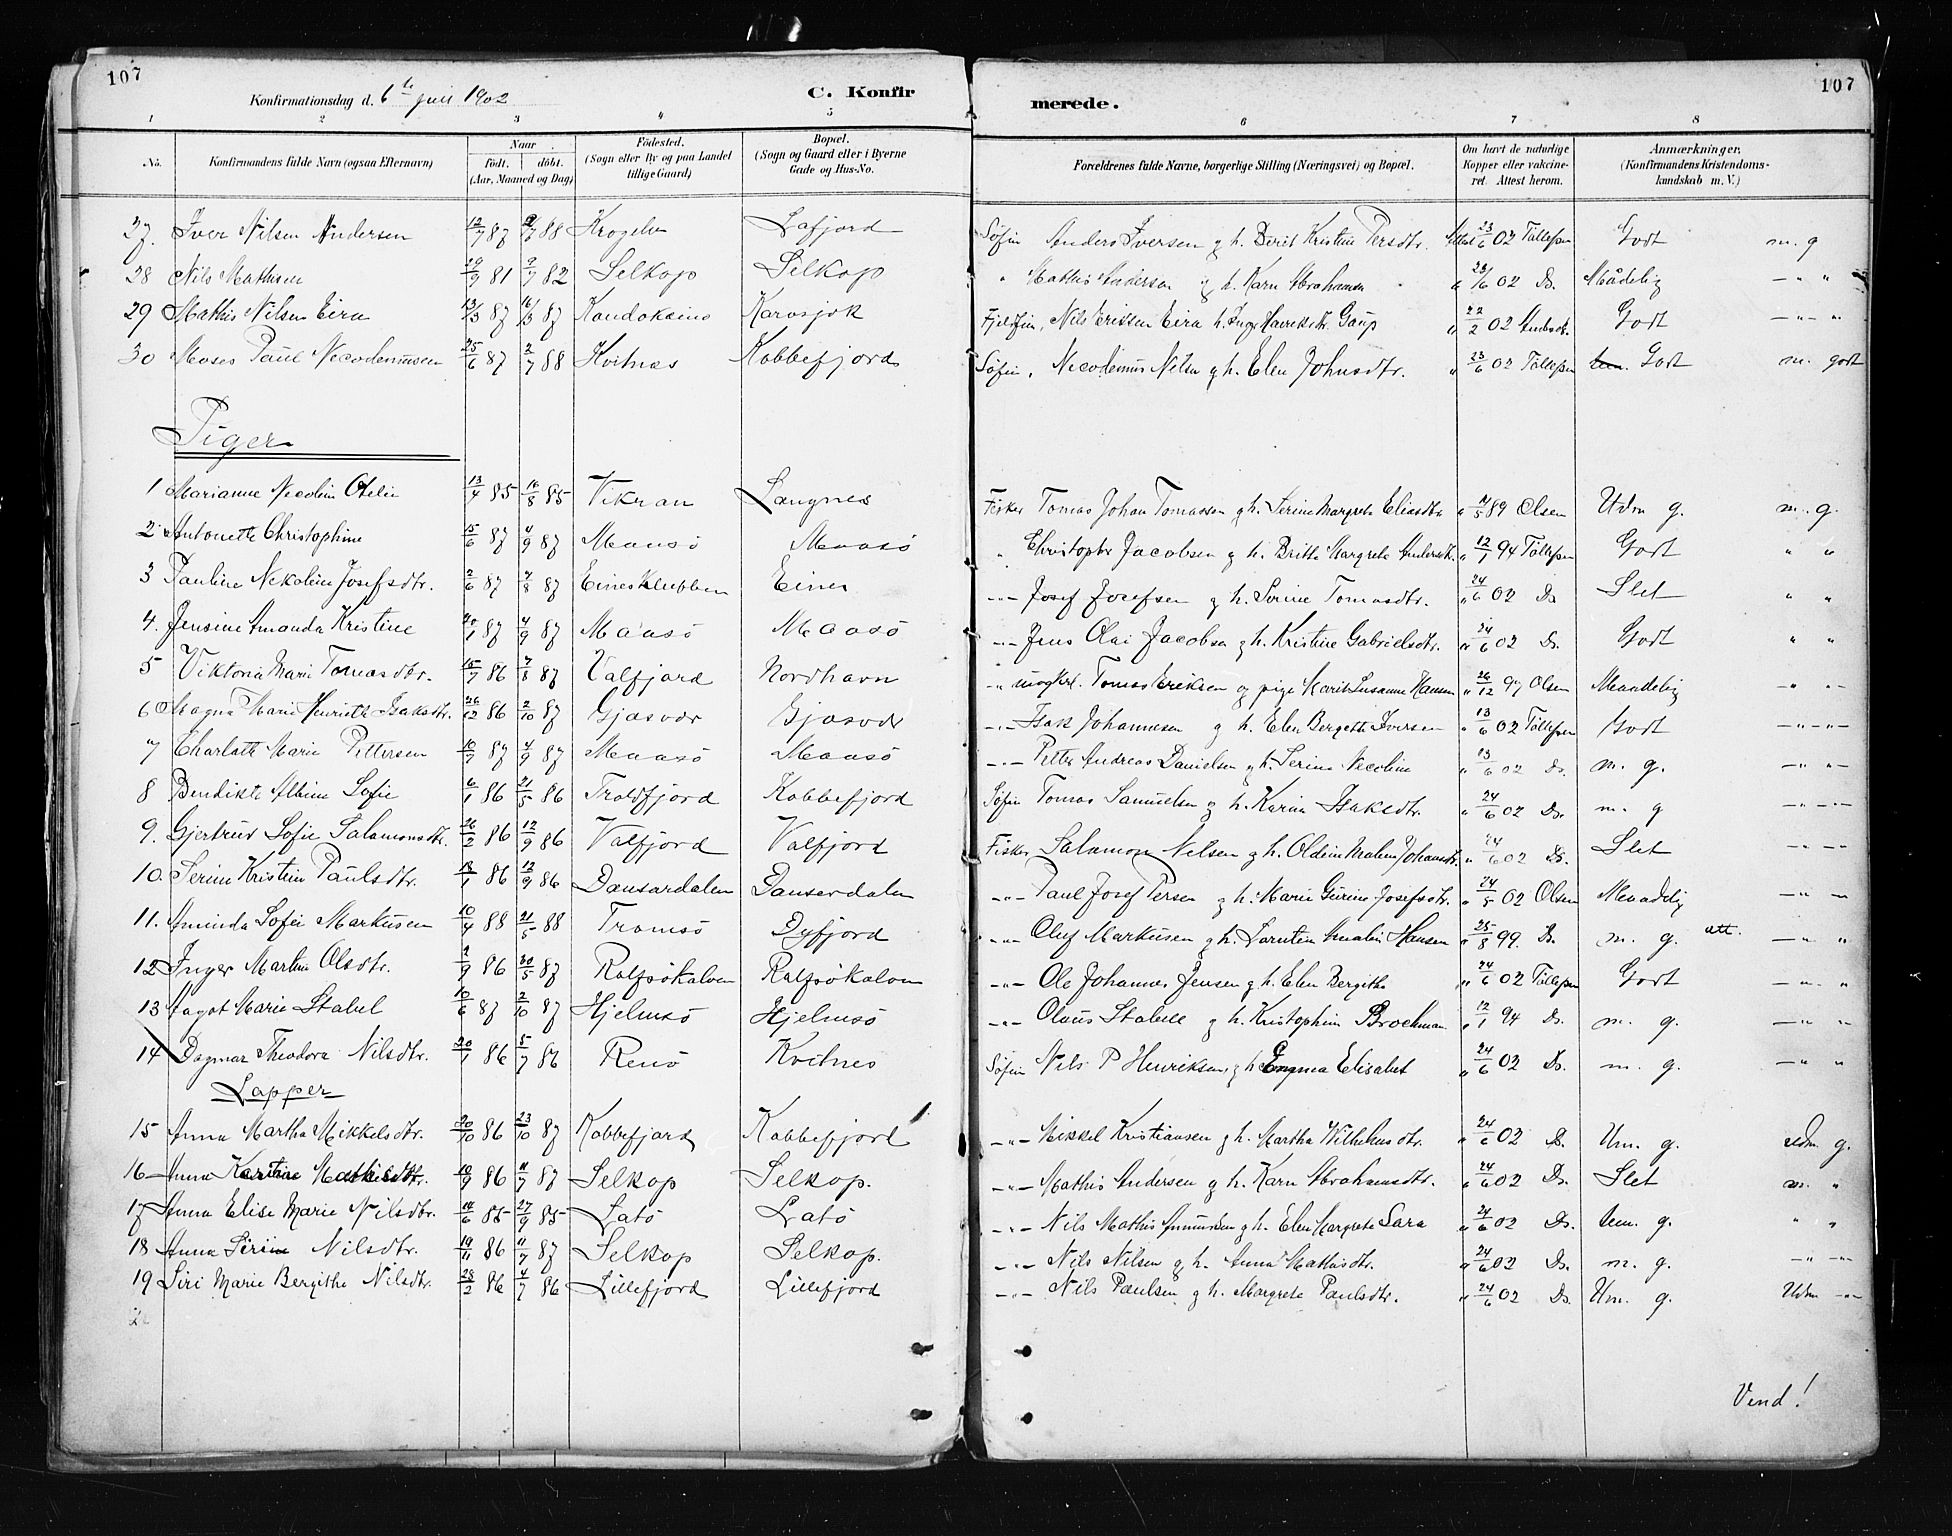 107
Konfirmationsdag d. 6te juli 1902
C. Konfirmerede.
107
1 2 3 4 5 6 7 8
No.
Konfirmandens fulde Navn (ogsaa Efternavn)
Naar
födt. döbt.
(Aar, Maaned og Dag)
Födested.
(Sogn eller By og paa Landet tillige Gaard)
Bopæl.
(Sogn og Gaard eller i Byerne Gade og Hus-No.
Forældrenes fulde Navne, borgerlige Stilling (Næringsvei) og Bopæl.
Om havt de naturlige Kopper eller vakcineret. Attest herom.
Anmærkninger.
(Konfirmandens Kristendomskundskab m. V.)
27. Iver Nilsen Andersen 12/7 87 88 Krogelv Lafjord Söfin Anders Iversen g h. Berit Kristine Persdtr. Attest 23/6 02 Tollefsen Godt m. g
28 Nils Mathisen 29/9 81 2/7 82 Selkop Selkop " Mathis Andersen g h. Karn Abrahamsen " 23/6 02 Do. Mådelig — " "
29 Mathis Nilsen Eira 13/3 87 16/3 87 Koudokeino Karosjok Fjeldfin, Nils Eriksen Eira h. Inge Gaup " 22/2 02 Godt — " — "
30 Moses Paul Necodemusen 25/6 87 2/7 88 Kvitnes Kobbefjord Söfin, Necodemus Nilsen g h. Elen Johnsdtr. " 23/6 02 Tollefsen Godt m. godt
Piger
1 Marianne Necoline Otelie 13/4 85 16/8 85 Vikran Langnes Fisker Tomas Johan Tomassen g h. Serine Margrete Eliasdtr " 4/5 89 Olsen Udm g. m. g.
2 Antonette Christophine 15/6 87 4/9 87 Maasö Maasö " Christopher Jacobsen g h. Britte Margrete Andersdtr. " 12/1 94 Tollefsen Godt " "
3 Pauline Nekoline Josefsdtr. 2/6 87 7/8 87 Einesklubben Eines — " — Josef Josefsen g h. Serine Tomasdtr. " 24/6 02 Do Slet " "
4. Jensine Amanda Kristine 20/1 87 4/9 87 Maasö Maasö — " — Jens Olai Jacobsen g h. Kristine Gabrielsdtr. " 24/6 02 D. Godt " "
5 Viktoria Marie Tomasdtr. 15/7 86 7/8 87 Valfjord Nordhavn — " ungkrl. Tomas Eriksen og pige Marit Susanne Hansen " 26/12 97 Olsen Maadelig — " —
6 Magna Marie Henriette Isaksdtr. 26/12 86 2/10 87 Gjæsvær Gjæsvær — " — Isak Johannesen g h. Elen Bergette Iversen " 13/6 02 Tollefsen Godt — " — " —
7 Charlotte Marie Pettersen 10/7 87 4/9 87 Maasö Maasö — " — Petter Andreas Danielsen g h. Serine Necoline " 13/6 02 Do. m. g. — " —
8 Benedikte Albine Sofie 6/1 86 21/5 86 Troldfjord Kobbefjord Söfin Tomas Samuelsen g h. Karine Isaksdtr " 24/6 02 Do. m. g — " — " —
9. Gjertrud Sofie Salamonsdtr. 26/2 86 12/9 86 Valfjord Valfjord Fisker Salamon Nilsen g h. Oldine Malene Johansdtr. " 24/6 02 Do. Slet — " — "
10. Serine Kristine Paulsdtr. 13/1 86 12/9 86 Dansardalen Danserdalen — " — Paul Josef Persen g h. Marie Gurine Josefsdtr. " 24/5 02 Olsen Maadelig — " — "
11. Aminda Sofie Markusen 10/4 88 21/5 88 Tromsö Dyfjord — " — Oluf Markusen g h. Amalie Hansen " 25/8 99. D. m. g. att. — " "
12 Inger Martine Olsdtr. 2/9 86 30/5 87 Rolfsökalven Rolfsökalven — " — Ole Johannes Jensen g h. Elen Bergithe " 24/6 02 Tollefsen Godt — " "
13 Aagot Marie Stabel 10/6 87 2/10 87 Hjelmsö Hjelmsö — " — Olaus Stabell g h. Kristophine Brochman " 12/1 94 Do. m. g. — " "
14 Dagmar Theodora Nilsdtr. 20/1 86 5/7 86 Renö Kvitnes Söfin Nils P Henriksen, g h Emma Elisabet " 24/6 02 Do. m. g. — " "
Lapper
15 Anna Martha Mikkelsdtr. 20/10 86 23/10 87 Kobbefjord Kobbefjord — " — Mikkel Kristiansen g h. Martha Wilhelmsdtr. " 24/6 02 D. Um. g. udm g.
16 Anna Karstine Mathisdtr. 10/9 86 11/7 87 Selkop Selkop. — " — Mathis Andersen g h. Karn Abrahamsdtr. " 24/6 02 Do. Slet m. "
17 Anna Elise Marie Nilsdtr. 14/6 85 27/9 85 Latö Latö — " — Nils Mathis Amundsen g h. Elen Margrete Sara " 24/6 02 Do. Um. g. " "
18 Anna Sirine Nilsdtr. 19/11 86 11/7 87 Selkop Selkop. — " — Nils Nilsen g h. Anna Mathisdtr. " 24/6 02 Do. m. g. — " —
19 Siri Marie Bergithe Nilsdtr. 28/2 86 4/7 86 Lillefjord Lillefjord — " — Nils Paulsen g h. Margrete Paulsdtr. " 24/6 02 Do. Um. g. Udm — " —
Vend!